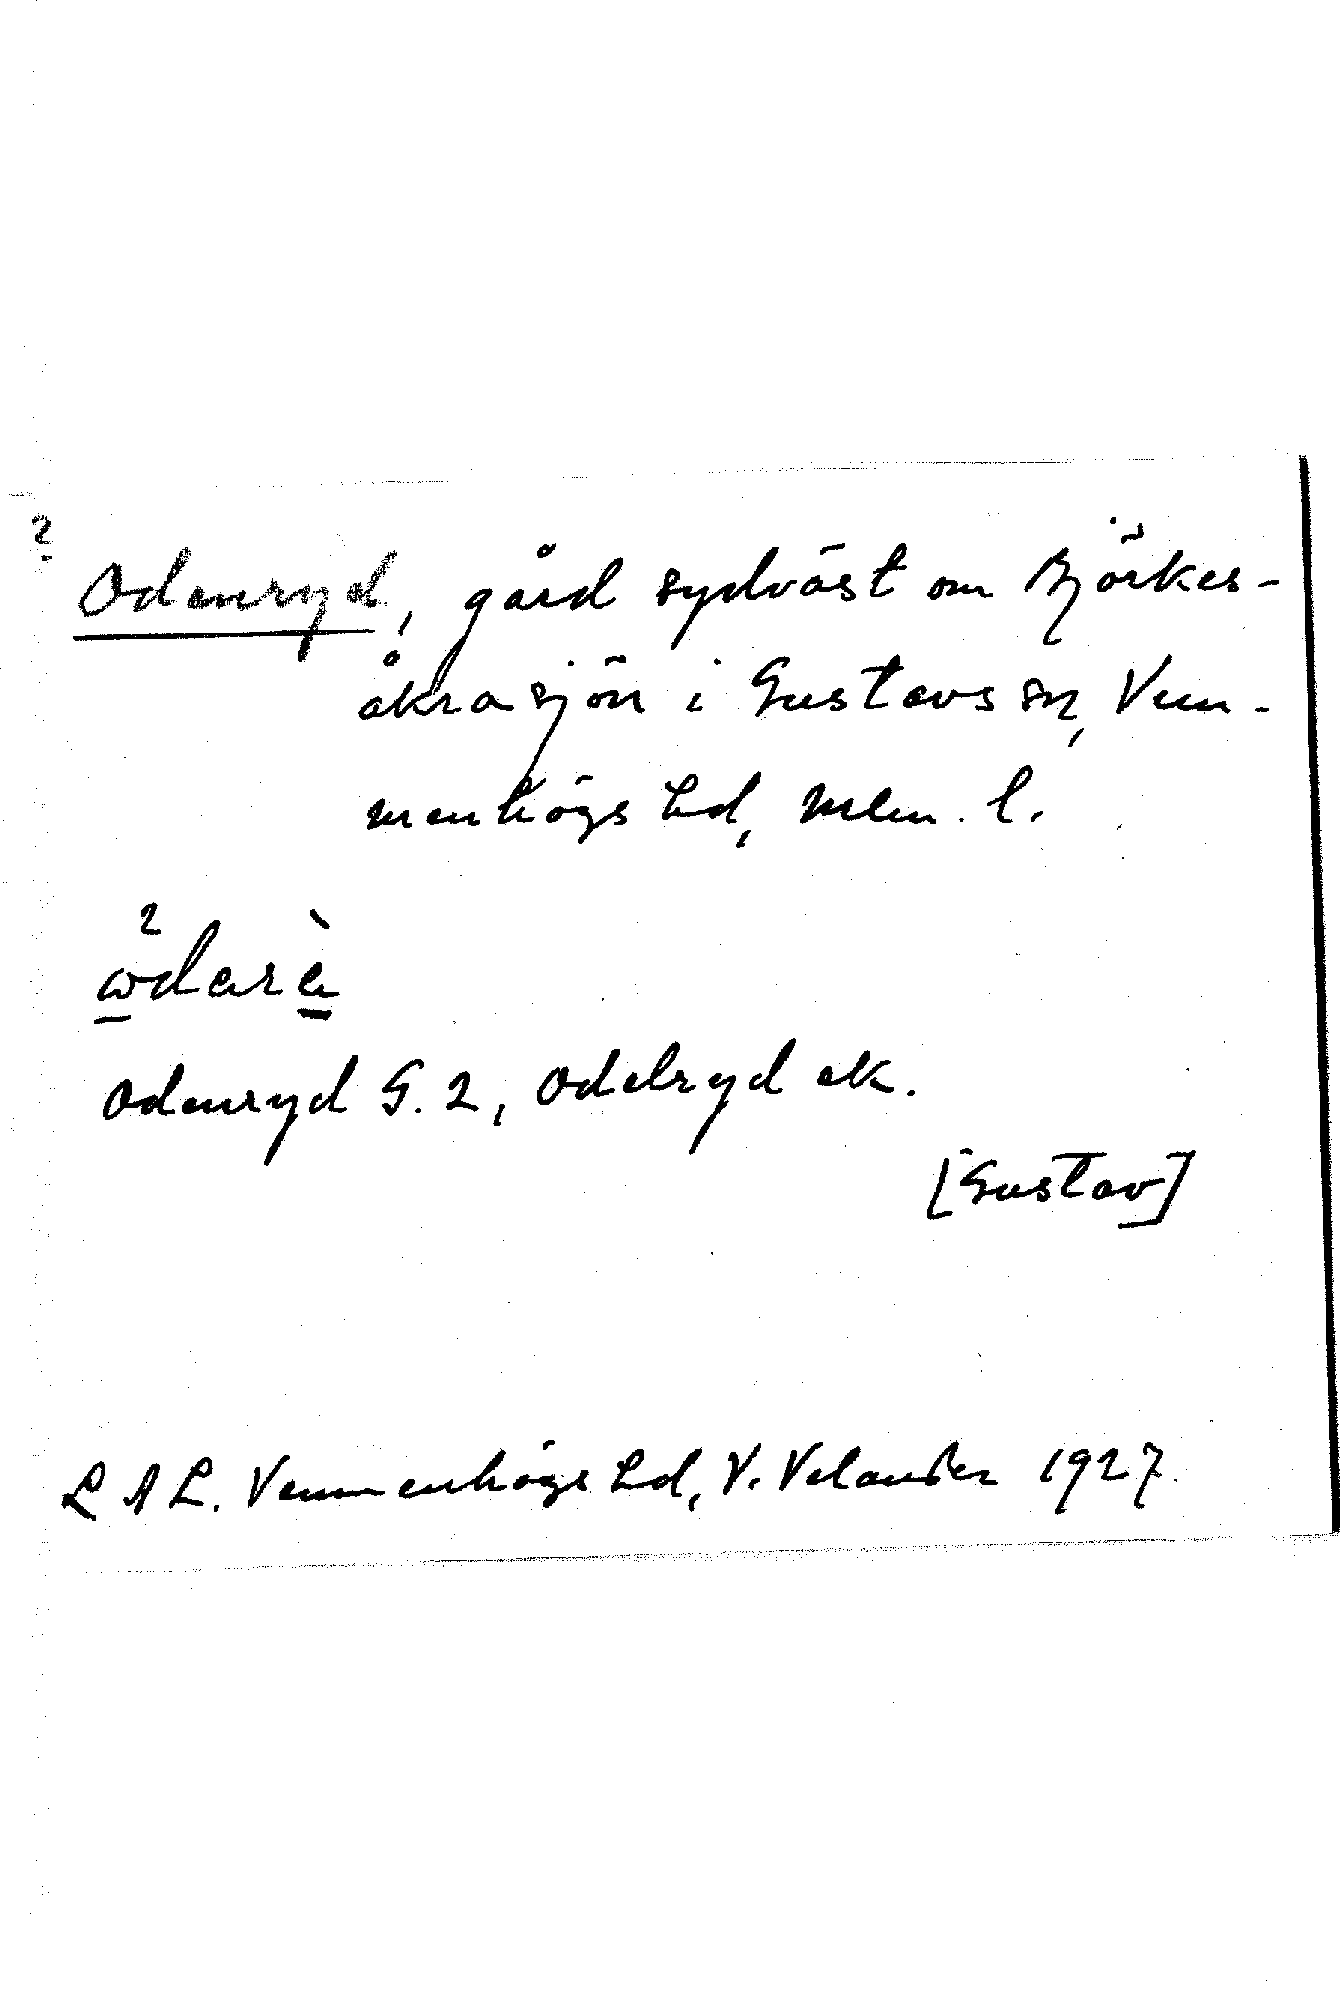 ? Odenryd, gård sydväst om Björkes-
åkrasjön i Gustavs sn, Vem-
menhögs hd, Mlm. l.
Odenryd G. 2, Odelryd ek.
[Gustav]
L A L. Vemmenhögs hd, V. Velander 1927.